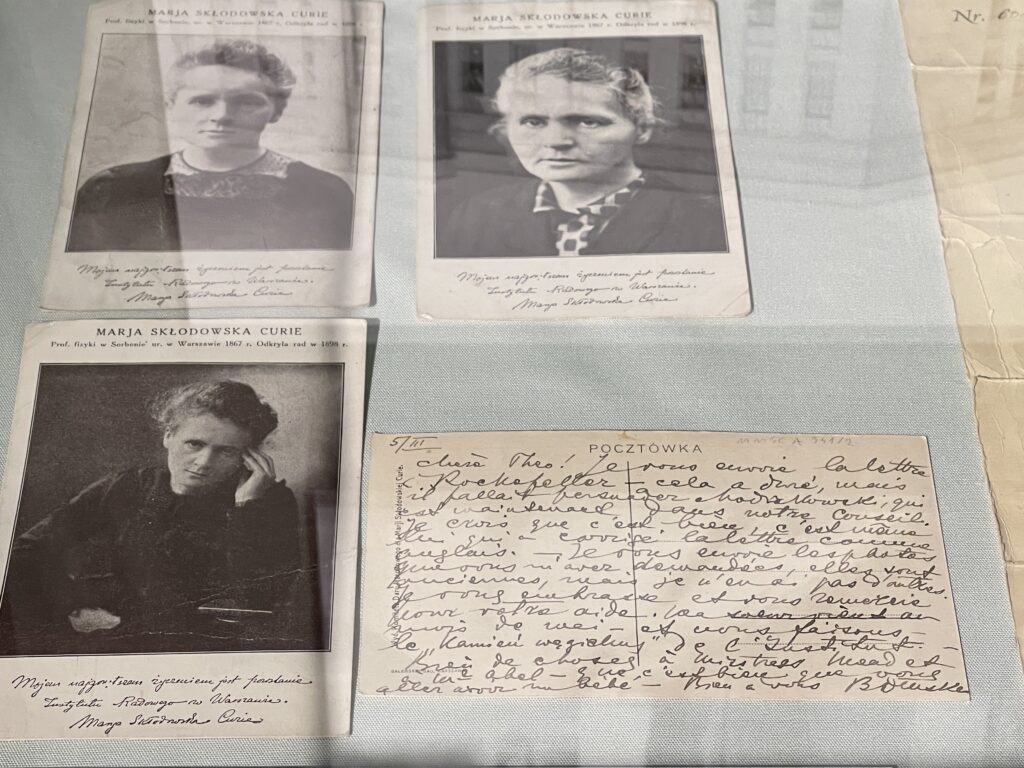 MARJA SKŁODOWSKA CURIE
Prof. fizyki w Sorbonie' ur. w Warszawie 1867 r. Odkryła rad w 1898 r.
Mojem najgorętszem życzeniem jest powstanie
Instytutu Radowego w Warszawie.
Marja Skłodowska Curie
MARJA SKŁODOWSKA CURIE
Prof. fizyki w Sorbonie' ur. w Warszawie 1867 r. Odkryła rad w 1898 r.
Mojem najgorętszem życzeniem jest powstanie
Instytutu Radowego w Warszawie.
Marja Skłodowska Curie
Nr.
MARJA SKŁODOWSKA CURIE
Prof. fizyki w Sorbonie' ur. w Warszawie 1867 r. Odkryła rad w 1898 r.
Mojem najgorętszem życzeniem jest powstanie
Instytutu Radowego w Warszawie.
Marja Skłodowska Curie
5/III
POCZTÓWKA
Chère Theo! Je vous envoie la lettre
Rockefeller – cela a duré, mais
il fallait persuader qui
est maintenant dans notre Conseil.
Je crois que c'est bien, c'est même
lui qui a corrigé la lettre comme
anglais. – Je vous envoie les photos
que vous m'avez demandées, elles sont
anciennes, mais je n'en ai pas d'autres.
Je vous embrasse et vous remercie
pour votre aide.
mois de mai – et nous faisons
le "Kamień węgielny" de l'Institut. –
de choses à Mistress Mead et
à que c'est bien que vous
aller avoir un bébé – Bien à vous